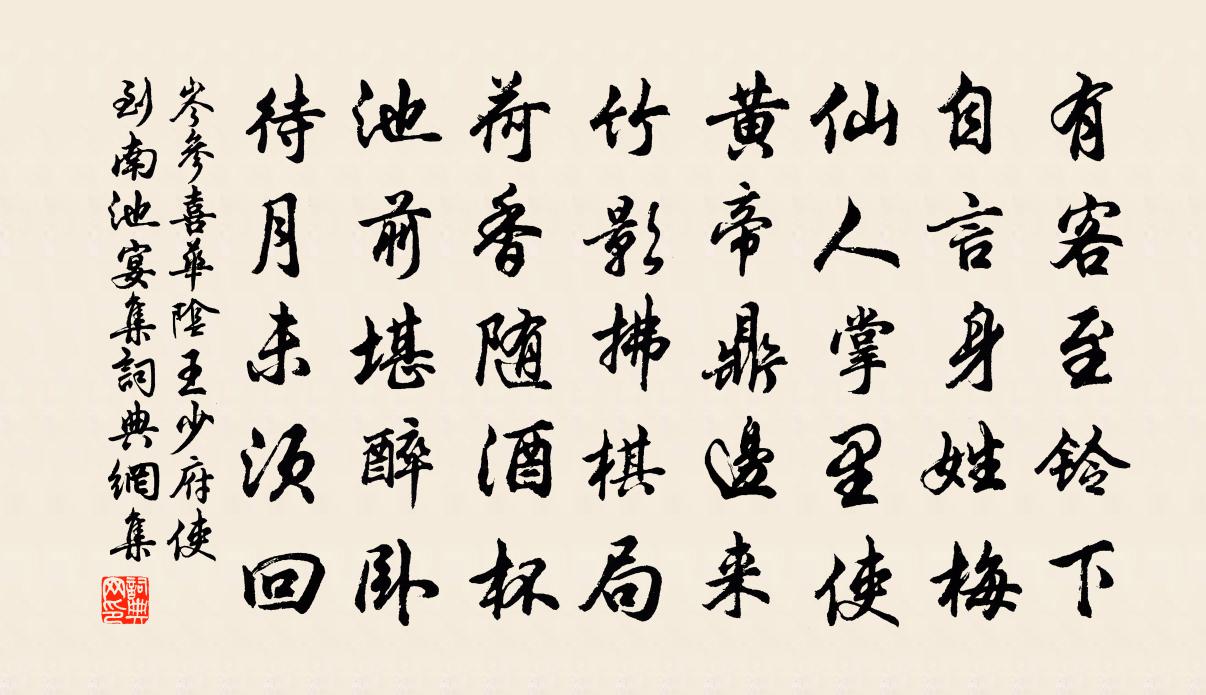 有客至鈴下
自言身姓梅
仙人掌里使
黃帝鼎邊来
竹影拂棋局
荷香隨酒杯
池前堪醉卧
待月未須回
岑參喜華陰王少府使
到南池宴集詞典網集
詞典网印